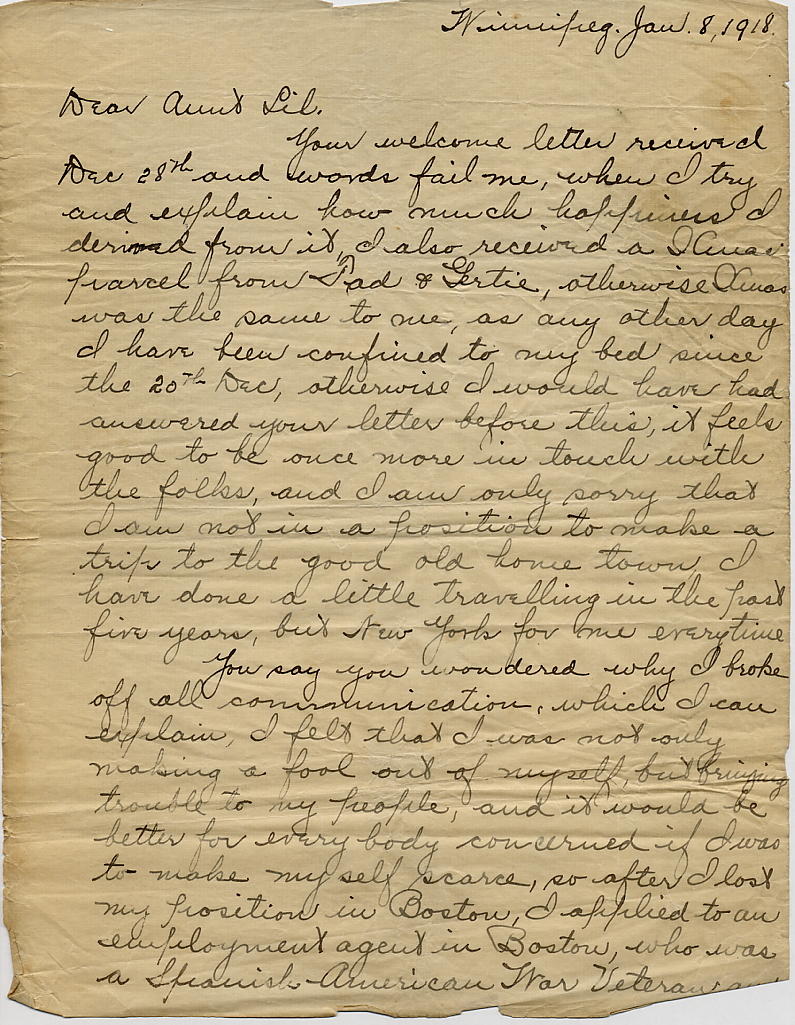 Winnipeg. Jan. 8, 1918.
Dear Aunt Lil.
Your welcome letter received
Dec 28th and words fail me, when I try
and explain how much happiness I
derived from it, I also received a Xmas
parcel from Dad & Gertie, otherwise Xmas
was the same to me, as any other day
I have been confined to my bed since
the 20th Dec, otherwise I would have had
answered your letter before this, it feels
good to be once more in touch with
the folks, and I am only sorry that
I am not in a position to make a
trip to the good old home town, I
have done a little travelling in the past
five years, but New York for me everytime
You say you wondered why I broke
off all communication, which I can
explain, I felt that I was not only
making a fool out of myself, but bringing
trouble to my people, and it would be
better for every body concerned if I was
to make my self scarce, so after I lost
my position in Boston, I applied to an
employment agent in Boston, who was
a Spanish-American War Veteran